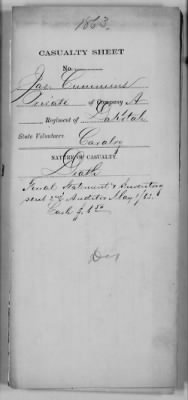 1863.
CASUALTY SHEET
No.
Jas. Cummins
Private of Company A
Regiment of Dakota
State Volunteers. Cavalry
NATURE OF CASUALTY.
Death
Final Statement & Inventory
sent 2nd Auditor May 1/63.